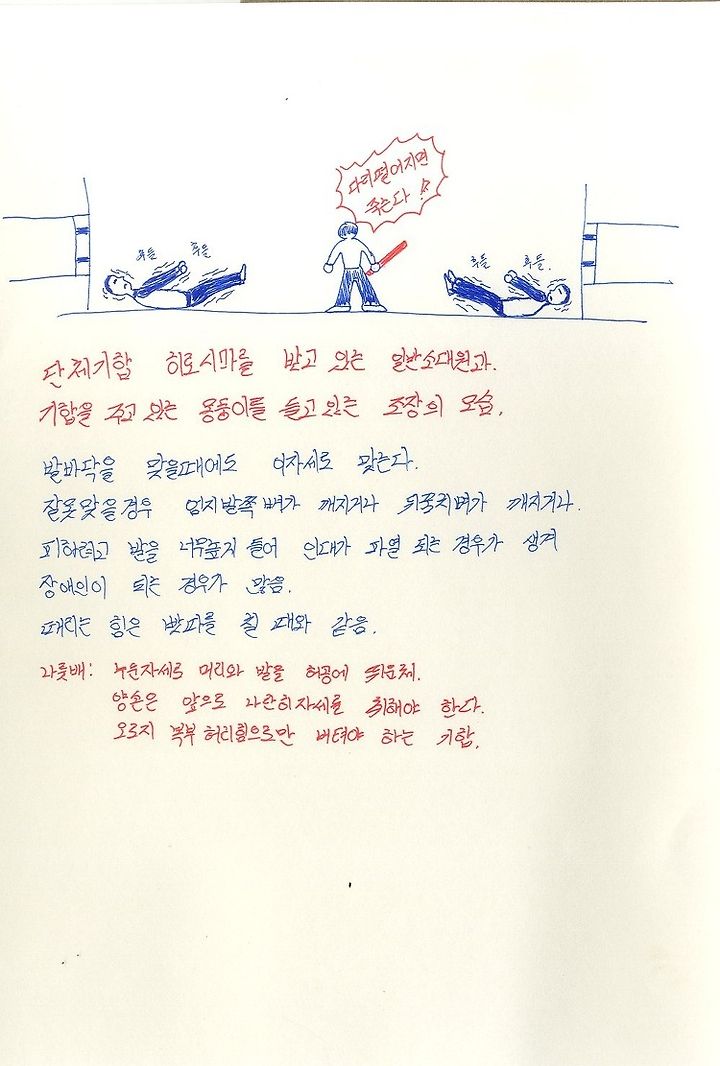 다리떨어지면
죽는다!?
후들 후들
후들 후들.
단체기합 히로시마를 받고 있는 일반소대원과.
기합을 주고 있는 몽둥이를 들고 있는 조장의 모습.
발바닥을 맞을때에도 이자세로 맞는다.
잘못맞을경우 엄지발쪽 뼈가 깨지거나 뒤꿈치뼈가 깨지거나.
피하려고 발을 너무높이 들어 인대가 파열 되는 경우가 생겨
장애인이 되는 경우가 많음.
때리는 힘은 빳따를 칠 때와 같음.
나룻배: 누운자세로 머리와 발을 허공에 띄운체.
양손은 앞으로 나란히자세를 취해야 한다.
오로지 복부 허리힘으로만 버텨야 하는 기합.